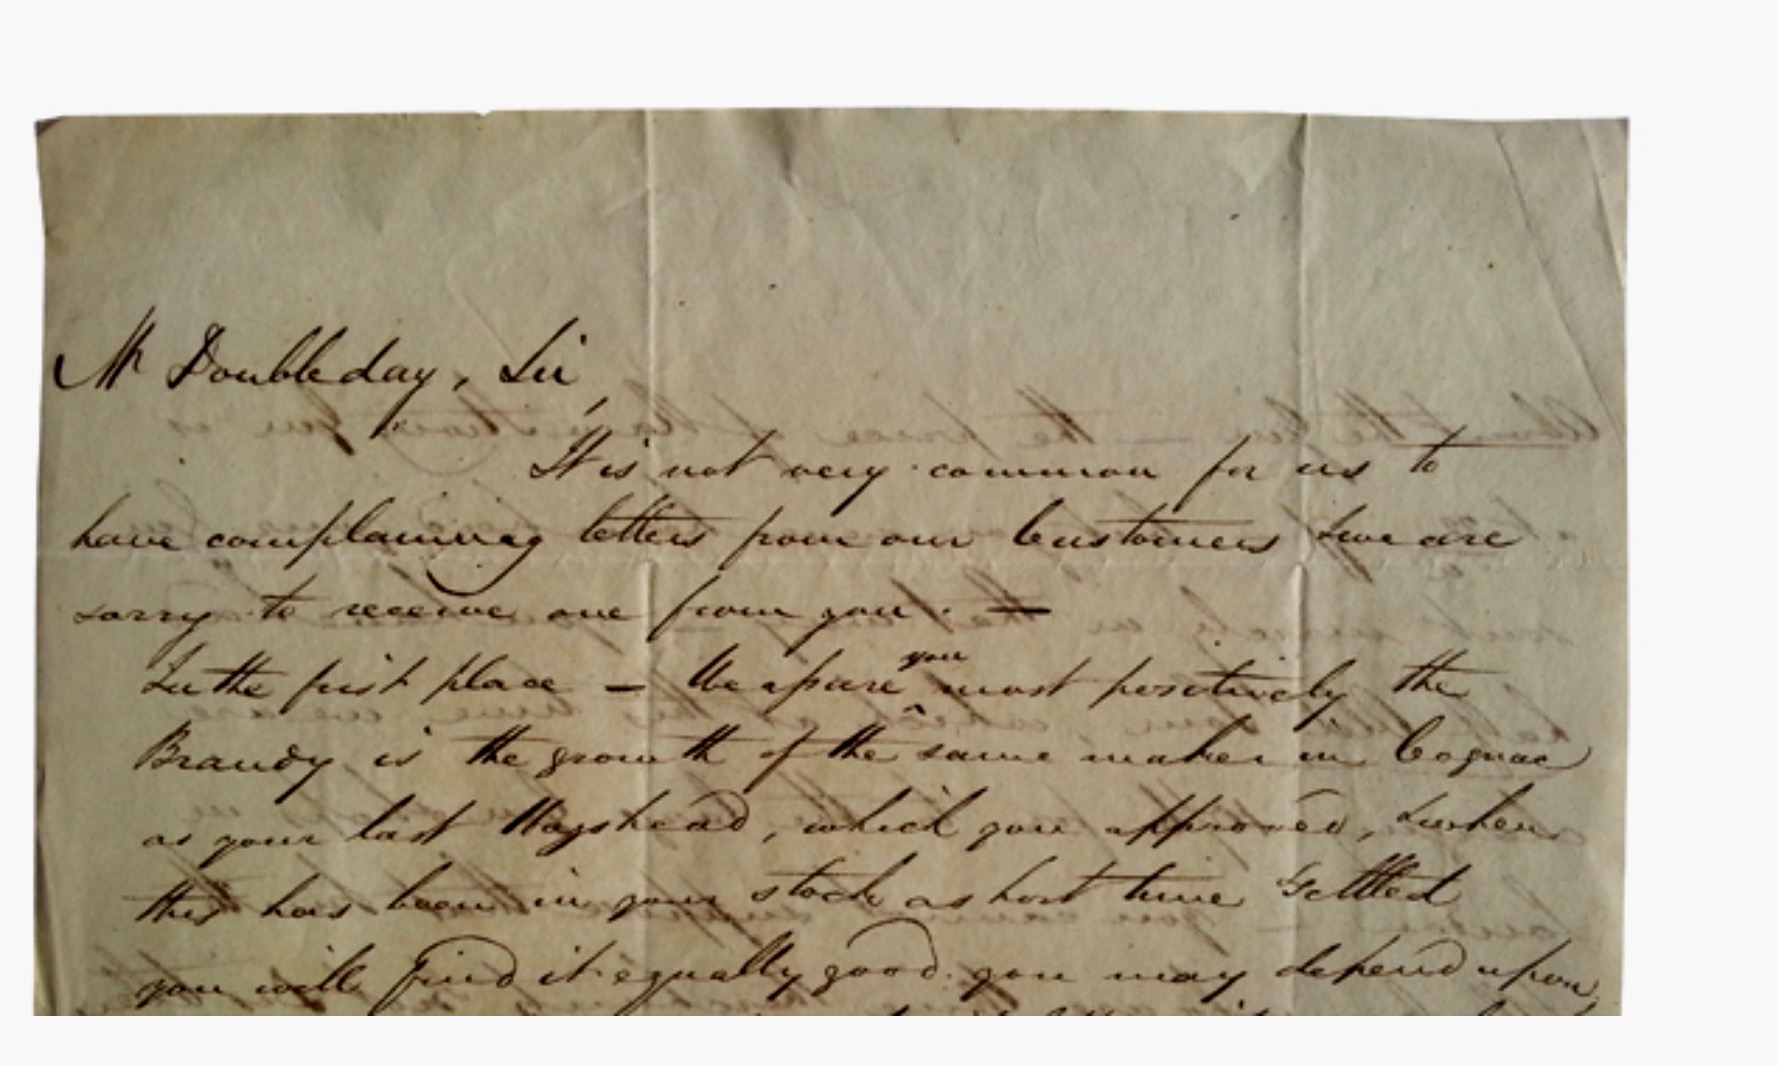 Mr Doubleday, Sir,
It is not very common for us to
have complaining letters from our Customers & we are
sorry to receive one from you. —
In the first place — We assure you most positively the
Brandy is the growth of the same maker in Cognac
as your last Hogshead, which you approved, & when
this has been in your stock a short time & settled
you will find it equally good. you may depend upon